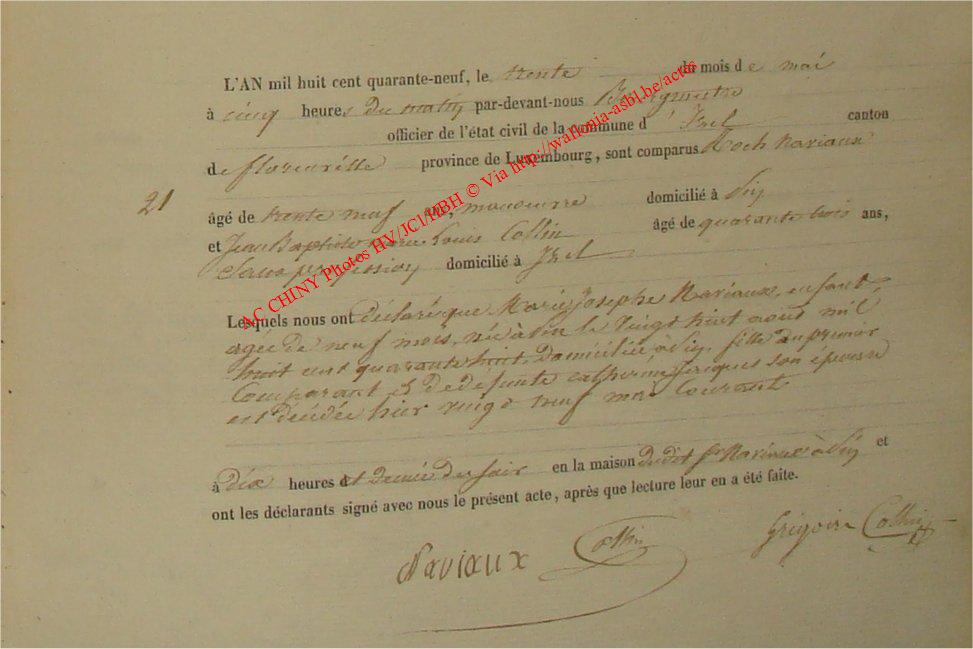 L'AN mil huit cent quarante-neuf, le trente du mois de mai
à cinq heures du matin par-devant-nous Bourgmestre
officier de l'état civil de la commune d'Izel canton
de florenville province de Luxembourg, sont comparus Roch Naviaux
21
âgé de trente neuf ans, manoeuvre domicilié à Pin
et Jean Baptiste Louis Collin âgé de quarante trois ans,
Sans profession domicilié à Izel
Lesquels nous ont déclaré que Marie Josephe Naviaux, enfant,
agée de neuf mois, née à Pin le vingt huit aout mil
huit cent quarante huit domiciliée à Pin, fille du premier
Comparant et de defunte catherine Jacques son épouse
est décédée hier vingt neuf mai Courant
à dix heures et demie du soir en la maison dudit Sr Naviaux à Pin et
ont les déclarants signé avec nous le présent acte, après que lecture leur en a été faite.
Naviaux Collin Grégoire Collin
AC CHINY Photos HV/JCl/HBH © Via http://wallonia-asbl.be/actes